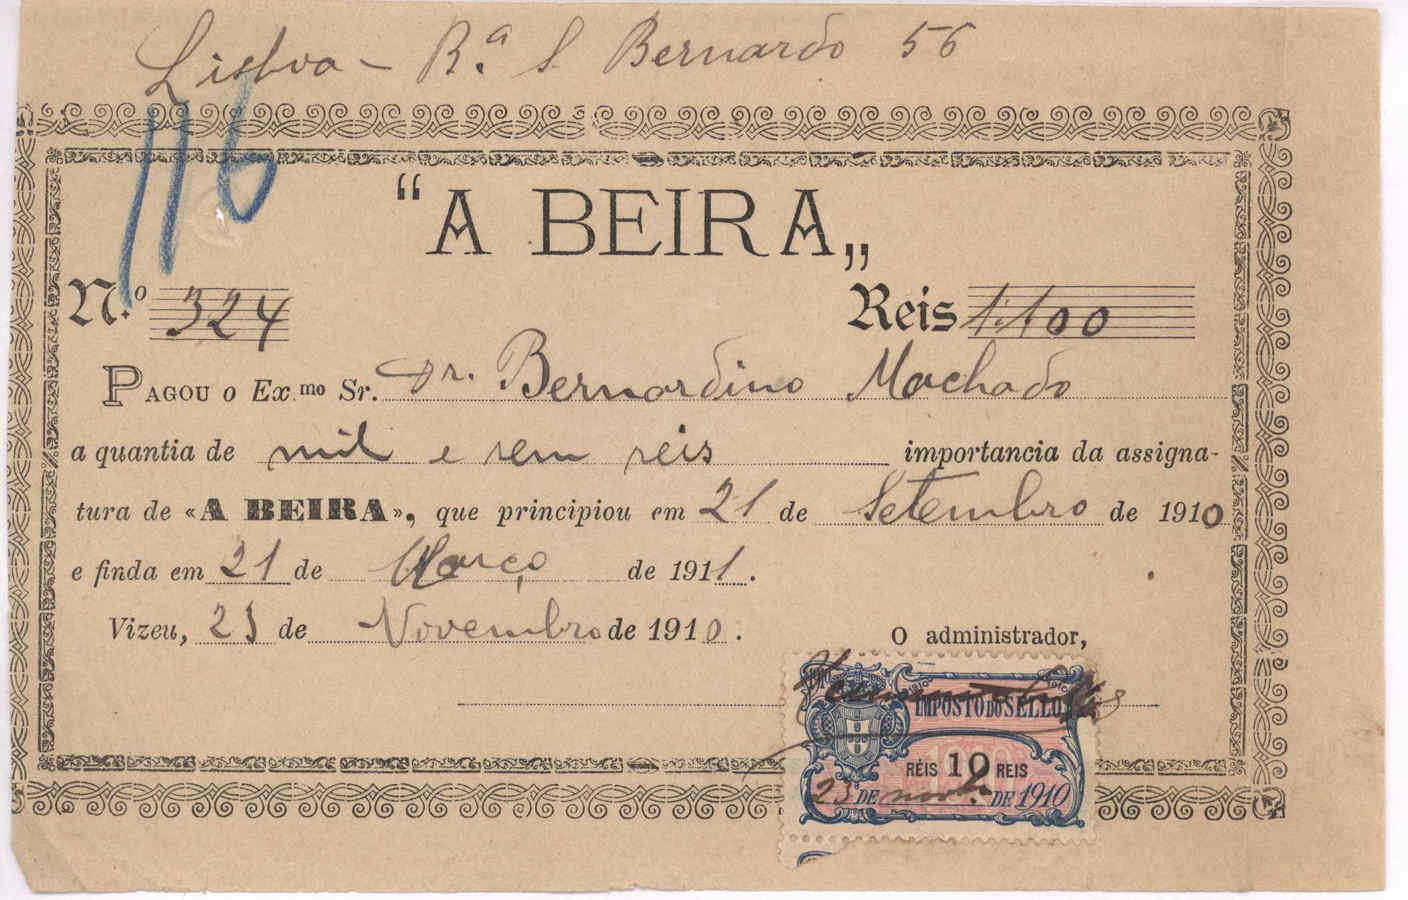 Lisboa - R.ª S. Bernardo 56
116
"A BEIRA„
N.º 324 Reis 1.100
PAGOU o Ex.mo Sr. Dr. Bernardino Machado
a quantia de mil e sem reis importancia da assigna-
tura de «A BEIRA», que principiou em 21 de Setembro de 1910
e finda em 21 de Março de 1911.
Vizeu, 23 de Novembro de 1910.
O administrador,
IMPOSTO DO SELLO
RÉIS 10 REIS
23 DE novb. DE 1910